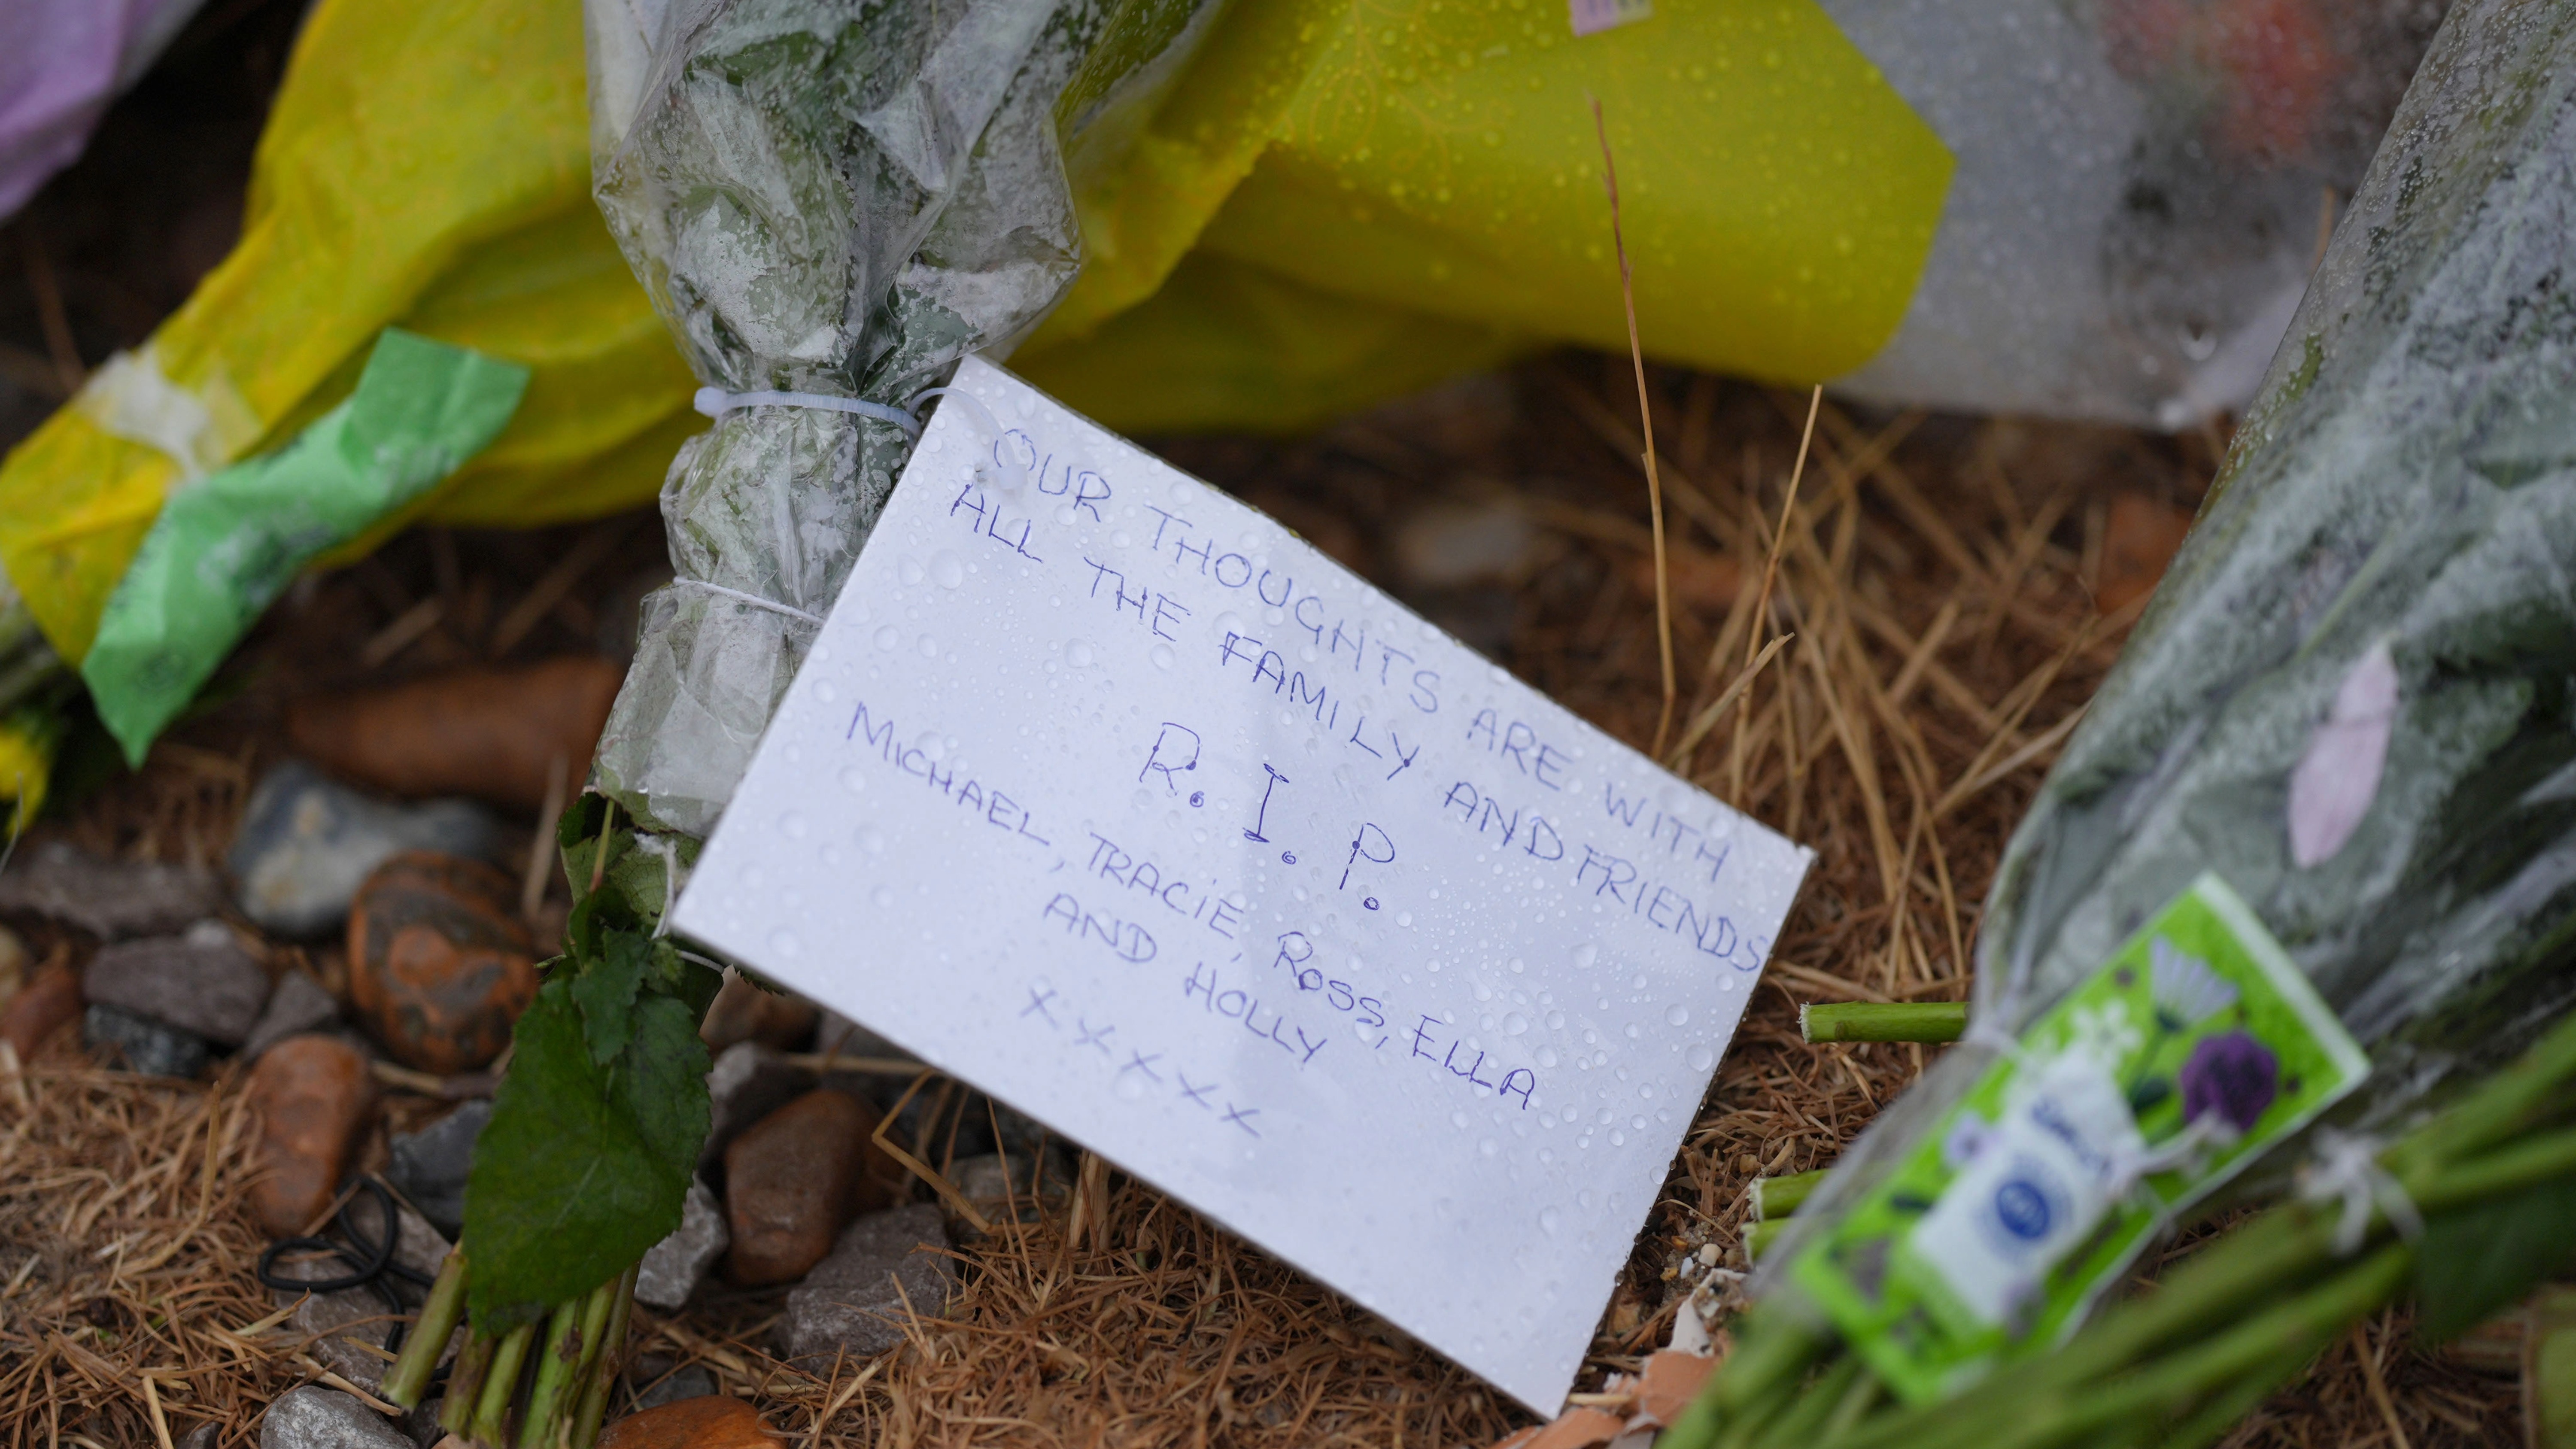 OUR THOUGHTS ARE WITH
ALL THE FAMILY AND FRIENDS
R.I.P.
MICHAEL, TRACIE, ROSS, ELLA
AND HOLLY
XXXXX